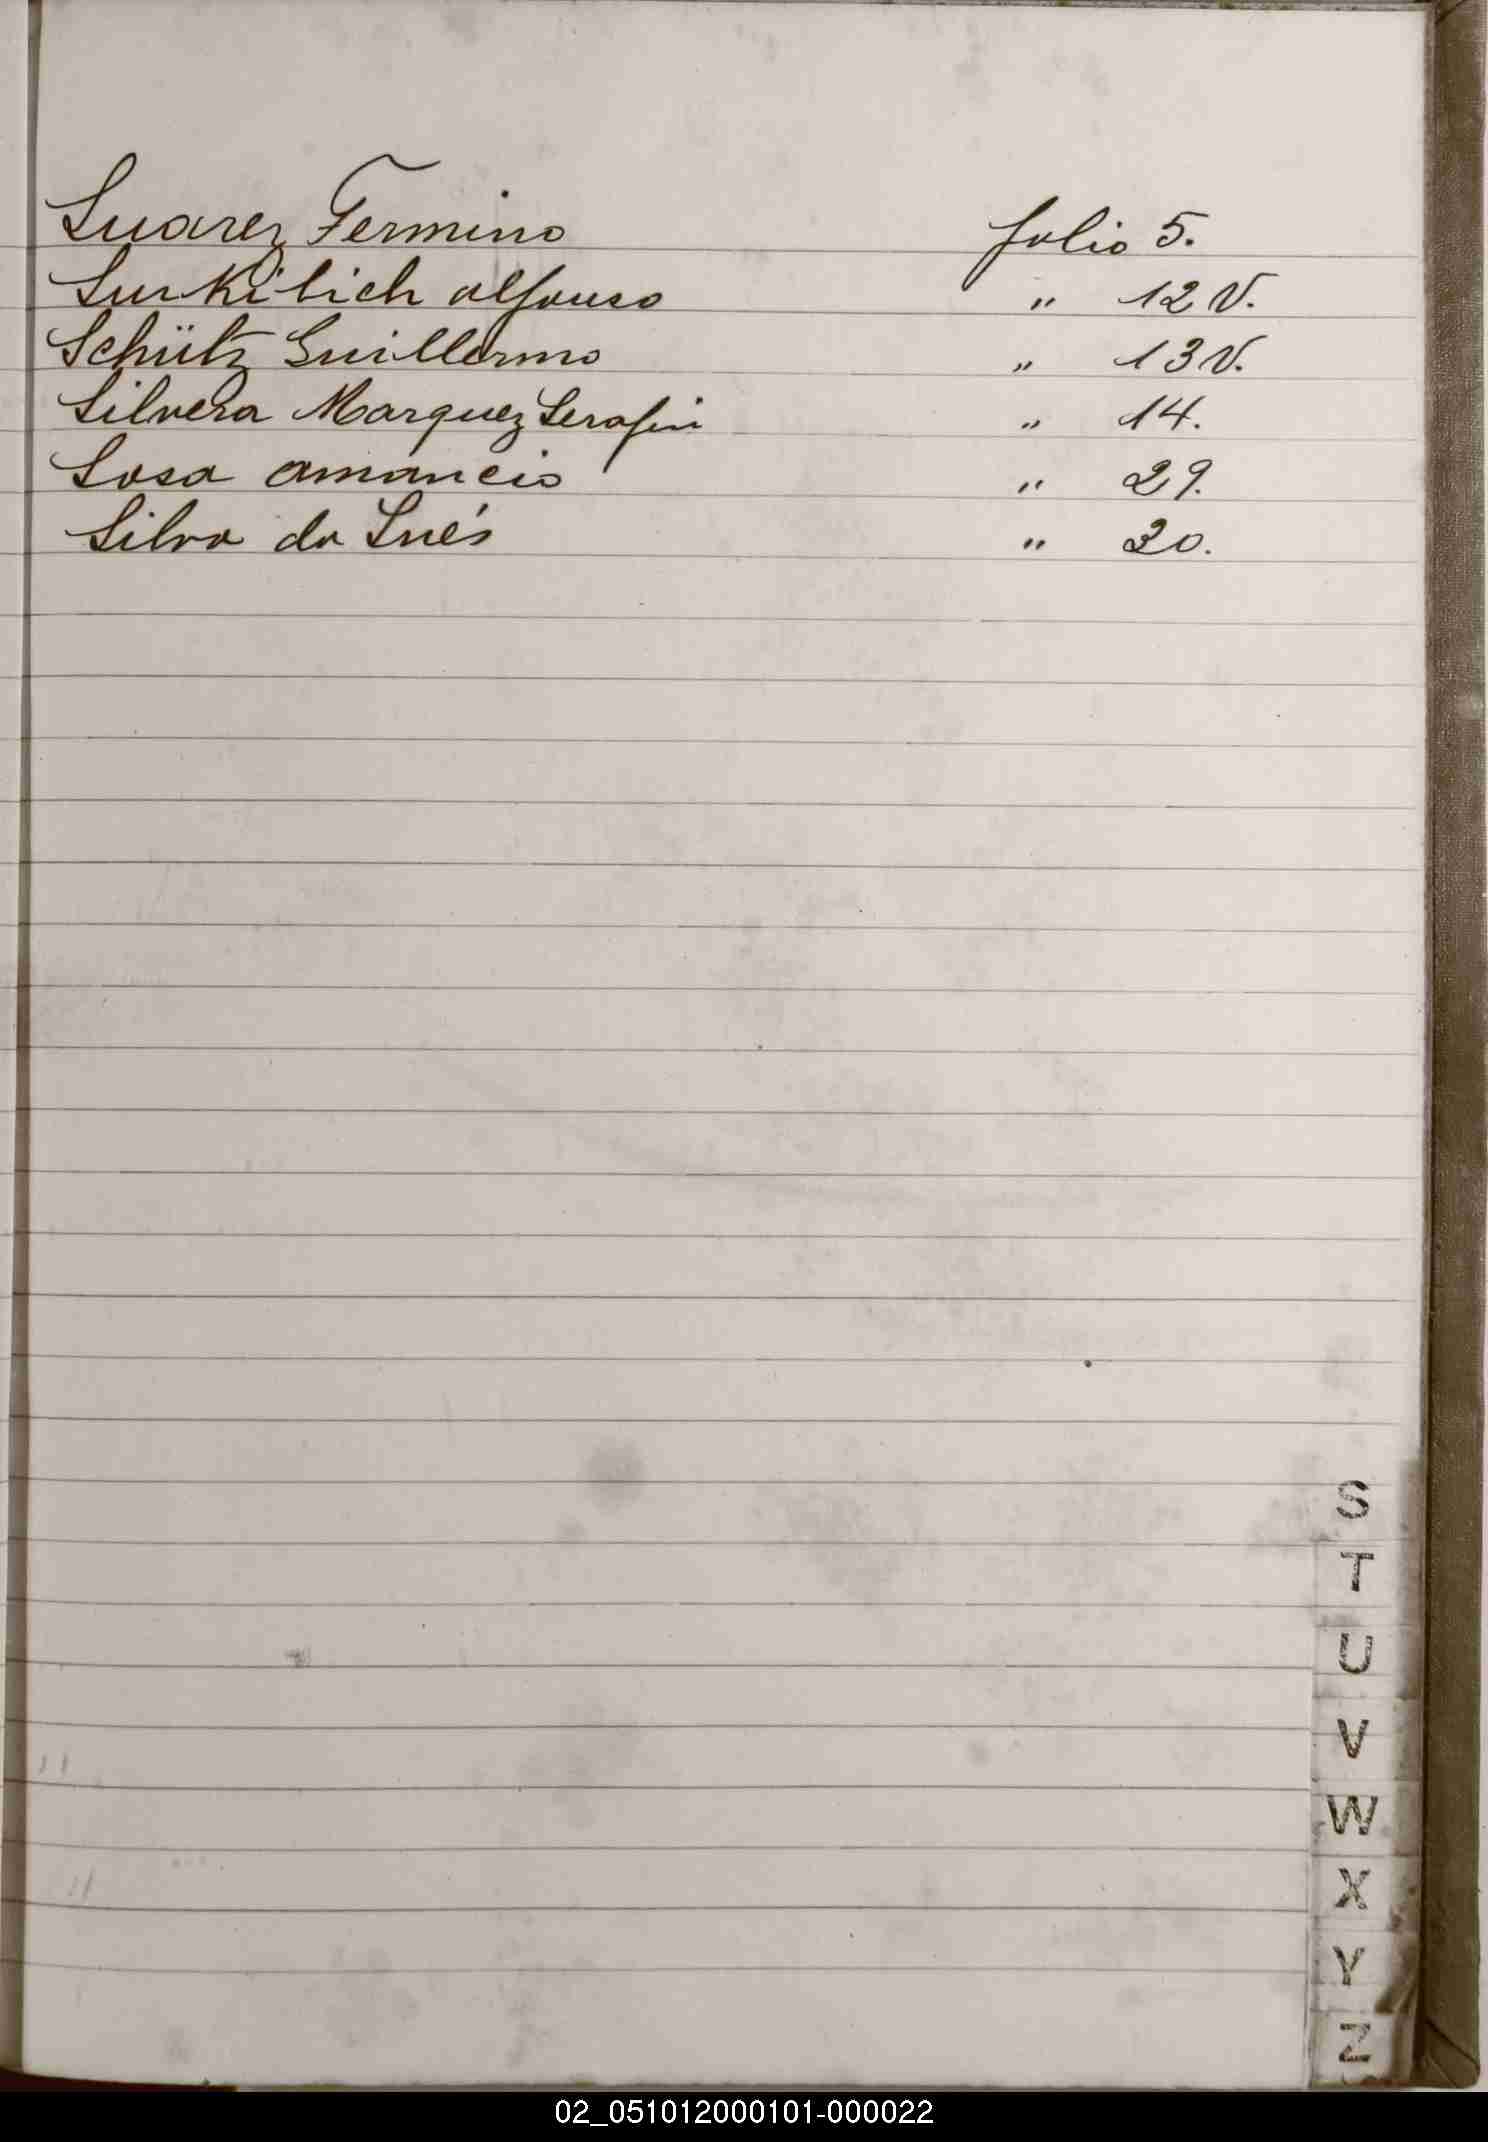 Suarez Fermino folio 5.
Surkilich alfonso " 12 V.
Schütz Guillermo " 13 V.
Silvera Marquez Serafin " 14.
Sosa amancio " 29.
Silva da Inés " 30.
S
T
U
V
W
X
Y
Z
02_051012000101-000022